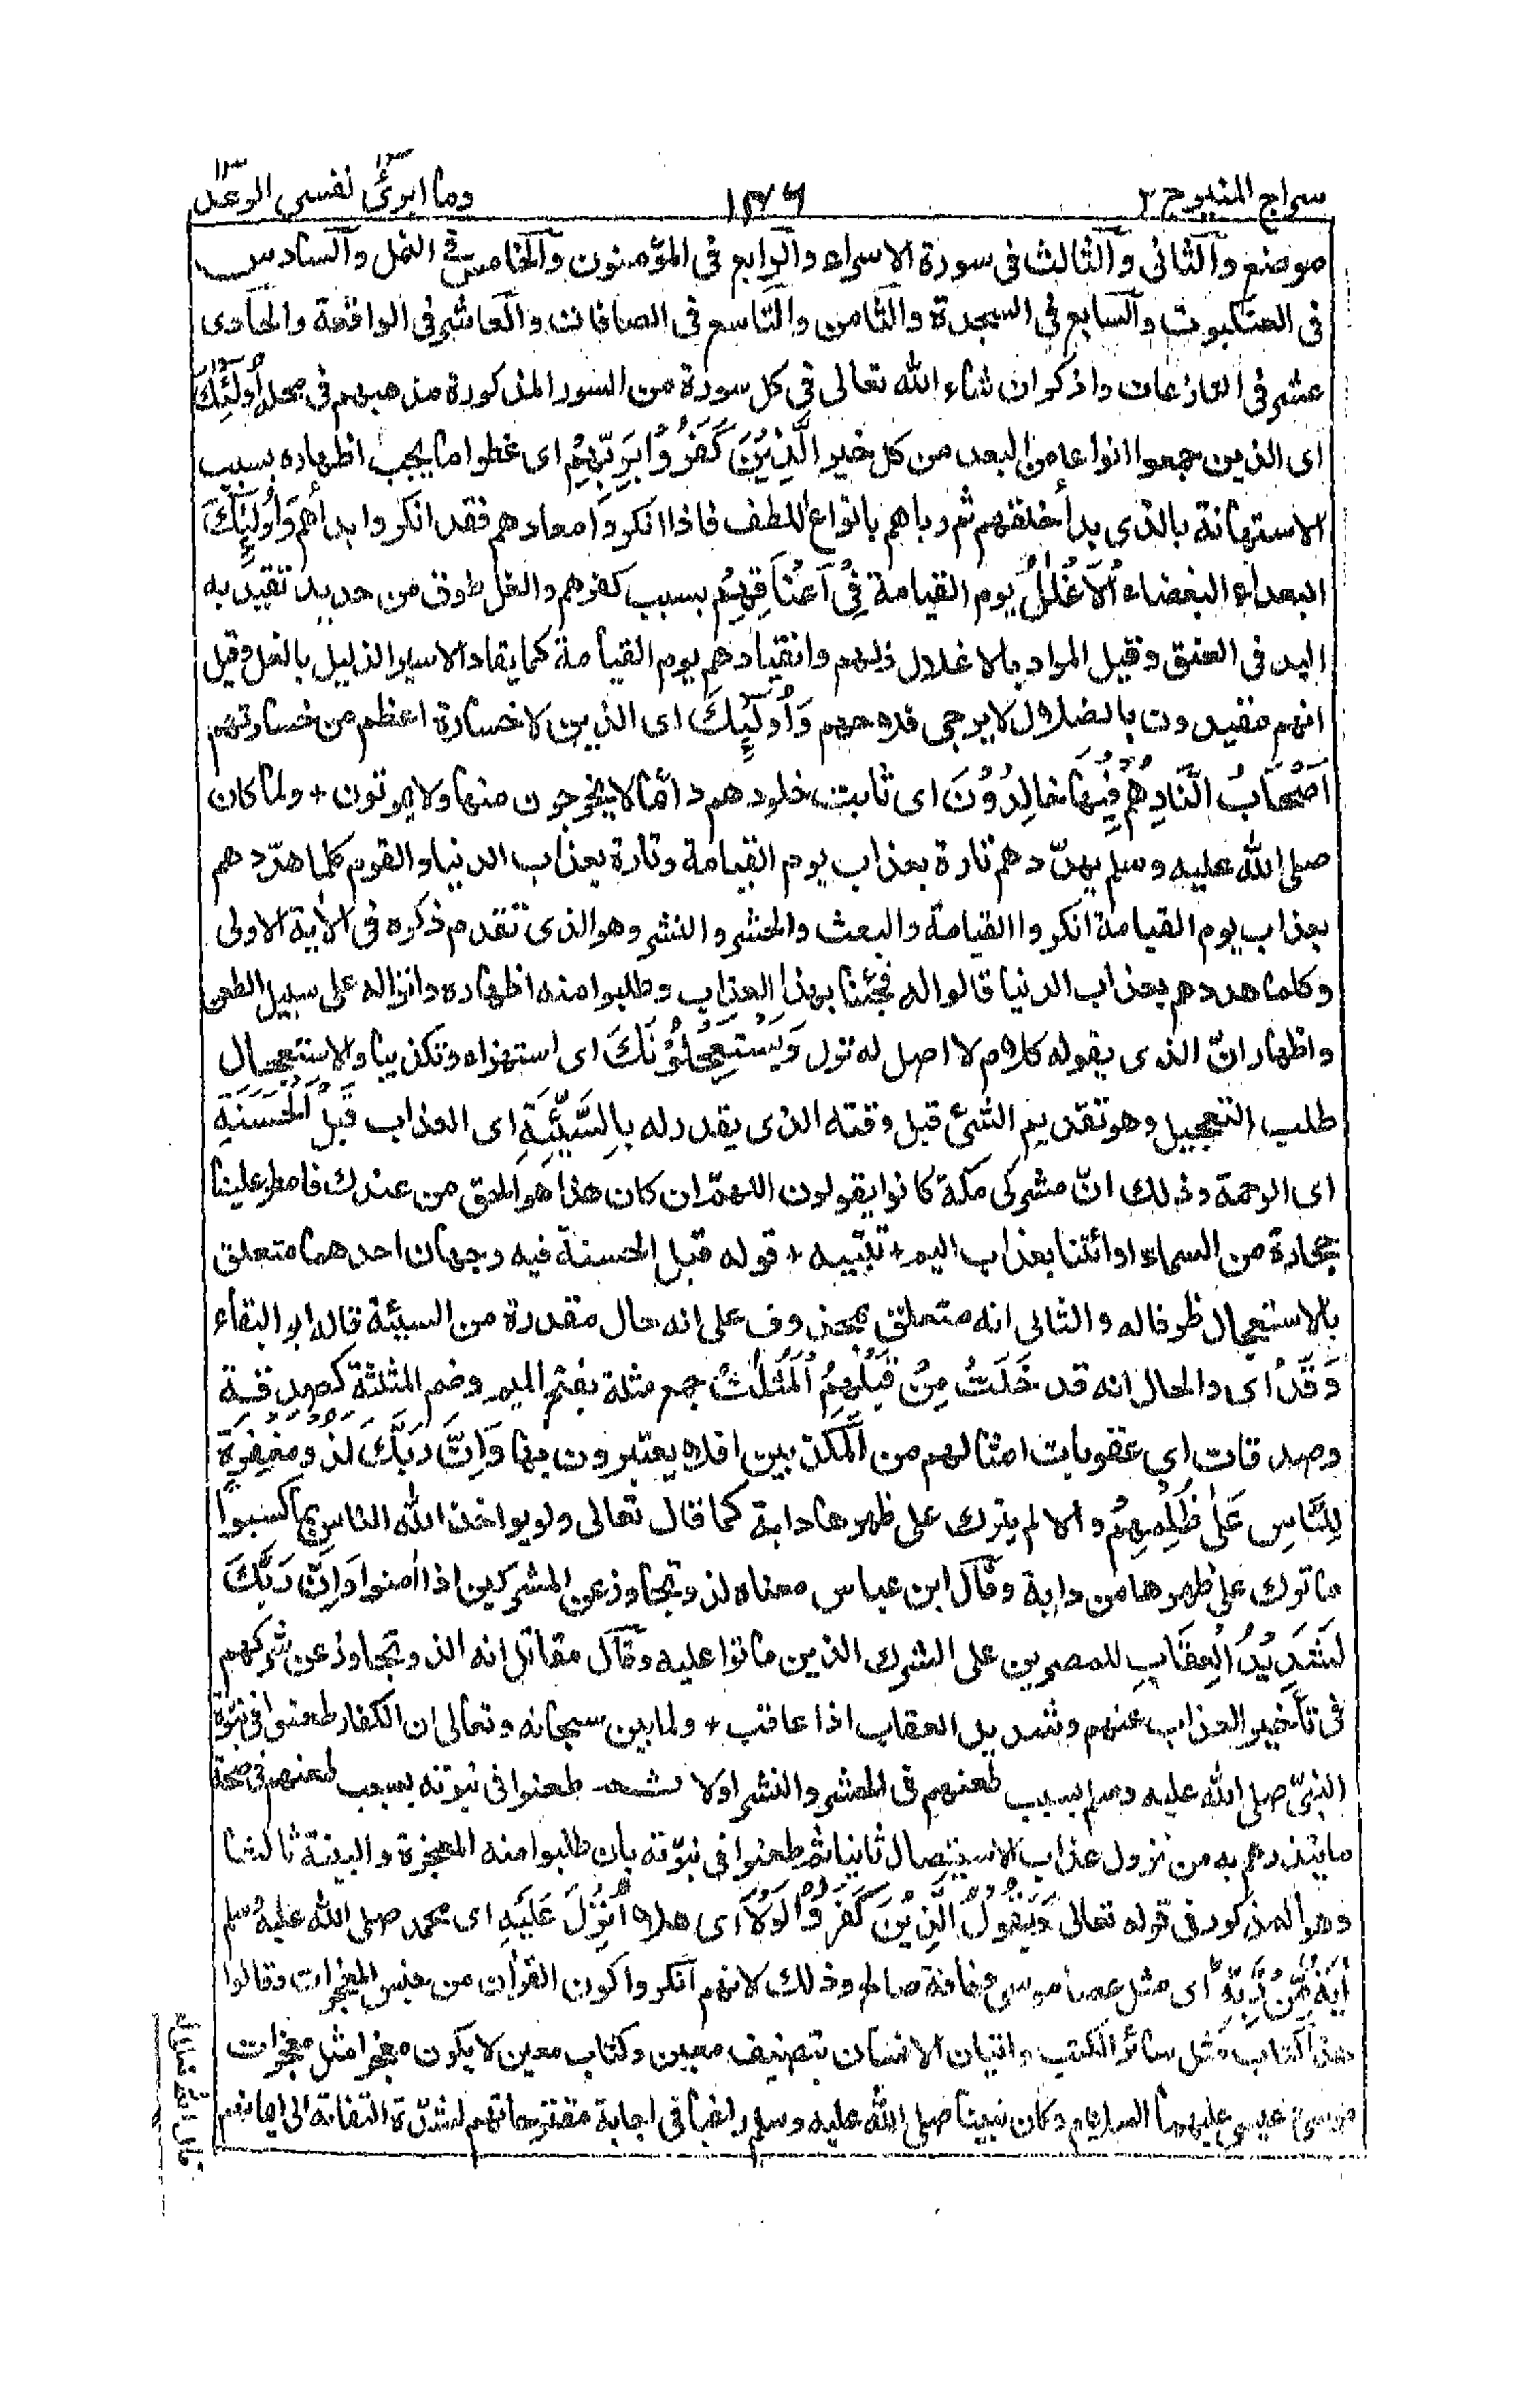 سراج المنير ج ٢
١٣٧٦
وما ابرئ نفسى ١٣ الرعد ١٣
موضع والثانى والثالث فى سورة الاسراء والرابع فى المؤمنون والخامس فى النمل والسادس
فى العنكبوت والسابع فى السجدة والثامن والتاسع فى الصافات والعاشر فى الواقعة والحادى
عشر فى النازعات واذكر ان شاء الله تعالى فى كل سورة من السور المذكورة مذهبهم فى محله أُولَٰئِكَ
اى الذين جمعوا انواعا من البعد من كل خير الَّذِيْنَ كَفَرُوْا بِرَبِّهِمْ اى غطوا ما يجب اظهاره بسبب
الاستهانة بالذى بدأ خلقهم ثم رباهم بانواع اللطف فاذا انكروا معادهم فقد انكروا بدأهم وَاُولَٰئِكَ
البعداء البغضاء الْاَغْلٰلُ يوم القيامة فِىْ اَعْنَاقِهِمْ بسبب كفرهم والغل طوق من حديد تقيد به
اليد فى العنق وقيل المراد بالاغلال ذلهم وانقيادهم يوم القيامة كما يقاد الاسير الذليل بالغل وقيل
انهم مقيدون بالضلال لا يرجى فلاحهم وَاُولَٰئِكَ اى الذين لا خسارة اعظم من خسارتهم
اَصْحَابُ النَّارِ هُمْ فِيْهَا خَالِدُوْنَ اى ثابت خلودهم دائما لا يخرجون منها ولا يموتون + ولما كان
صلى الله عليه وسلم يهدّدهم تارة بعذاب يوم القيامة وتارة بعذاب الدنيا والقوم كلما هدّدهم
بعذاب يوم القيامة انكروا القيامة والبعث والحشر والنشر وهو الذى تقدم ذكره فى الاٰية الاولى
وكلما هددهم بعذاب الدنيا قالوا له فجئنا بهذا العذاب وطلبوا منه اظهاره وانزاله على سبيل الطعن
واظهار انّ الذى يقوله كلام لا اصل له نزل وَيَسْتَعْجِلُوْنَكَ اى استهزاء وتكذيبا والاستعجال
طلب التعجيل وهو تقديم الشئ قبل وقته الذى يقدر له بِالسَّيِّئَةِ اى العذاب قَبْلَ الْحَسَنَةِ
اى الرحمة وذلك انّ مشركى مكة كانوا يقولون اللهمّ ان كان هذا هو الحق من عندك فامطر علينا
حجارة من السماء او ائتنا بعذاب اليم + تنبيه + قوله قبل الحسنة فيه وجهان احدهما متعلق
بالاستعجال ظرفا له والثانى انه متعلق بمحذوف على انه حال مقدرة من السيئة قاله ابو البقاء
وَقَدْ اى والحال انه قد خَلَتْ مِنْ قَبْلِهِمُ الْمَثُلٰتُ جمع مثلة بفتح الميم وضم المثلثة كصدقة
وصدقات اى عقوبات امثالهم من المكذبين افلا يعتبرون بها وَاِنَّ رَبَّكَ لَذُوْ مَغْفِرَةٍ
لِلنَّاسِ عَلٰى ظُلْمِهِمْ والا لم يترك على ظهرها دابة كما قال تعالى ولو يواخذ الله الناس بما كسبوا
ما ترك على ظهرها من دابة وقال ابن عباس معناه لذو تجاوز عن المشركين اذا اٰمنوا وَاِنَّ رَبَّكَ
لَشَدِيْدُ الْعِقَابِ للمصرين على الشرك الذين ماتوا عليه وقال مقاتل انه لذو تجاوز عن شركهم
فى تأخير العذاب عنهم وشديد العقاب اذا عاقب + ولما بين سبحانه وتعالى ان الكفار طعنوا فى نبوّة
النبىّ صلى الله عليه وسلم بسبب طعنهم فى الحشر والنشر اولا ثم طعنوا فى نبوته بسبب طعنهم فى صحة
ما ينذرهم به من نزول عذاب الاستيصال ثانيا ثم طعنوا فى نبوّته بان طلبوا منه المعجزة والبينة ثالثا
وهو المذكور فى قوله تعالى وَيَقُوْلُ الَّذِيْنَ كَفَرُوْا لَوْلَا اى هلا اُنْزِلَ عَلَيْهِ اى محمد صلى الله عليه وسلم
اٰيَةٌ مِّنْ رَّبِّهٖ اى مثل عصا موسى وناقة صالح وذلك لانهم انكروا كون القراٰن من جنس المعجزات وقالوا
هذا كتاب مثل سائر الكتب واتيان الانسان بتصنيف معين وكتاب معين لا يكون معجزا مثل معجزات
موسى وعيسى عليهما السلام وكان نبينا صلى الله عليه وسلم راغبا فى اجابة مقترحاتهم لشدّة التفاته الى ايمانهم